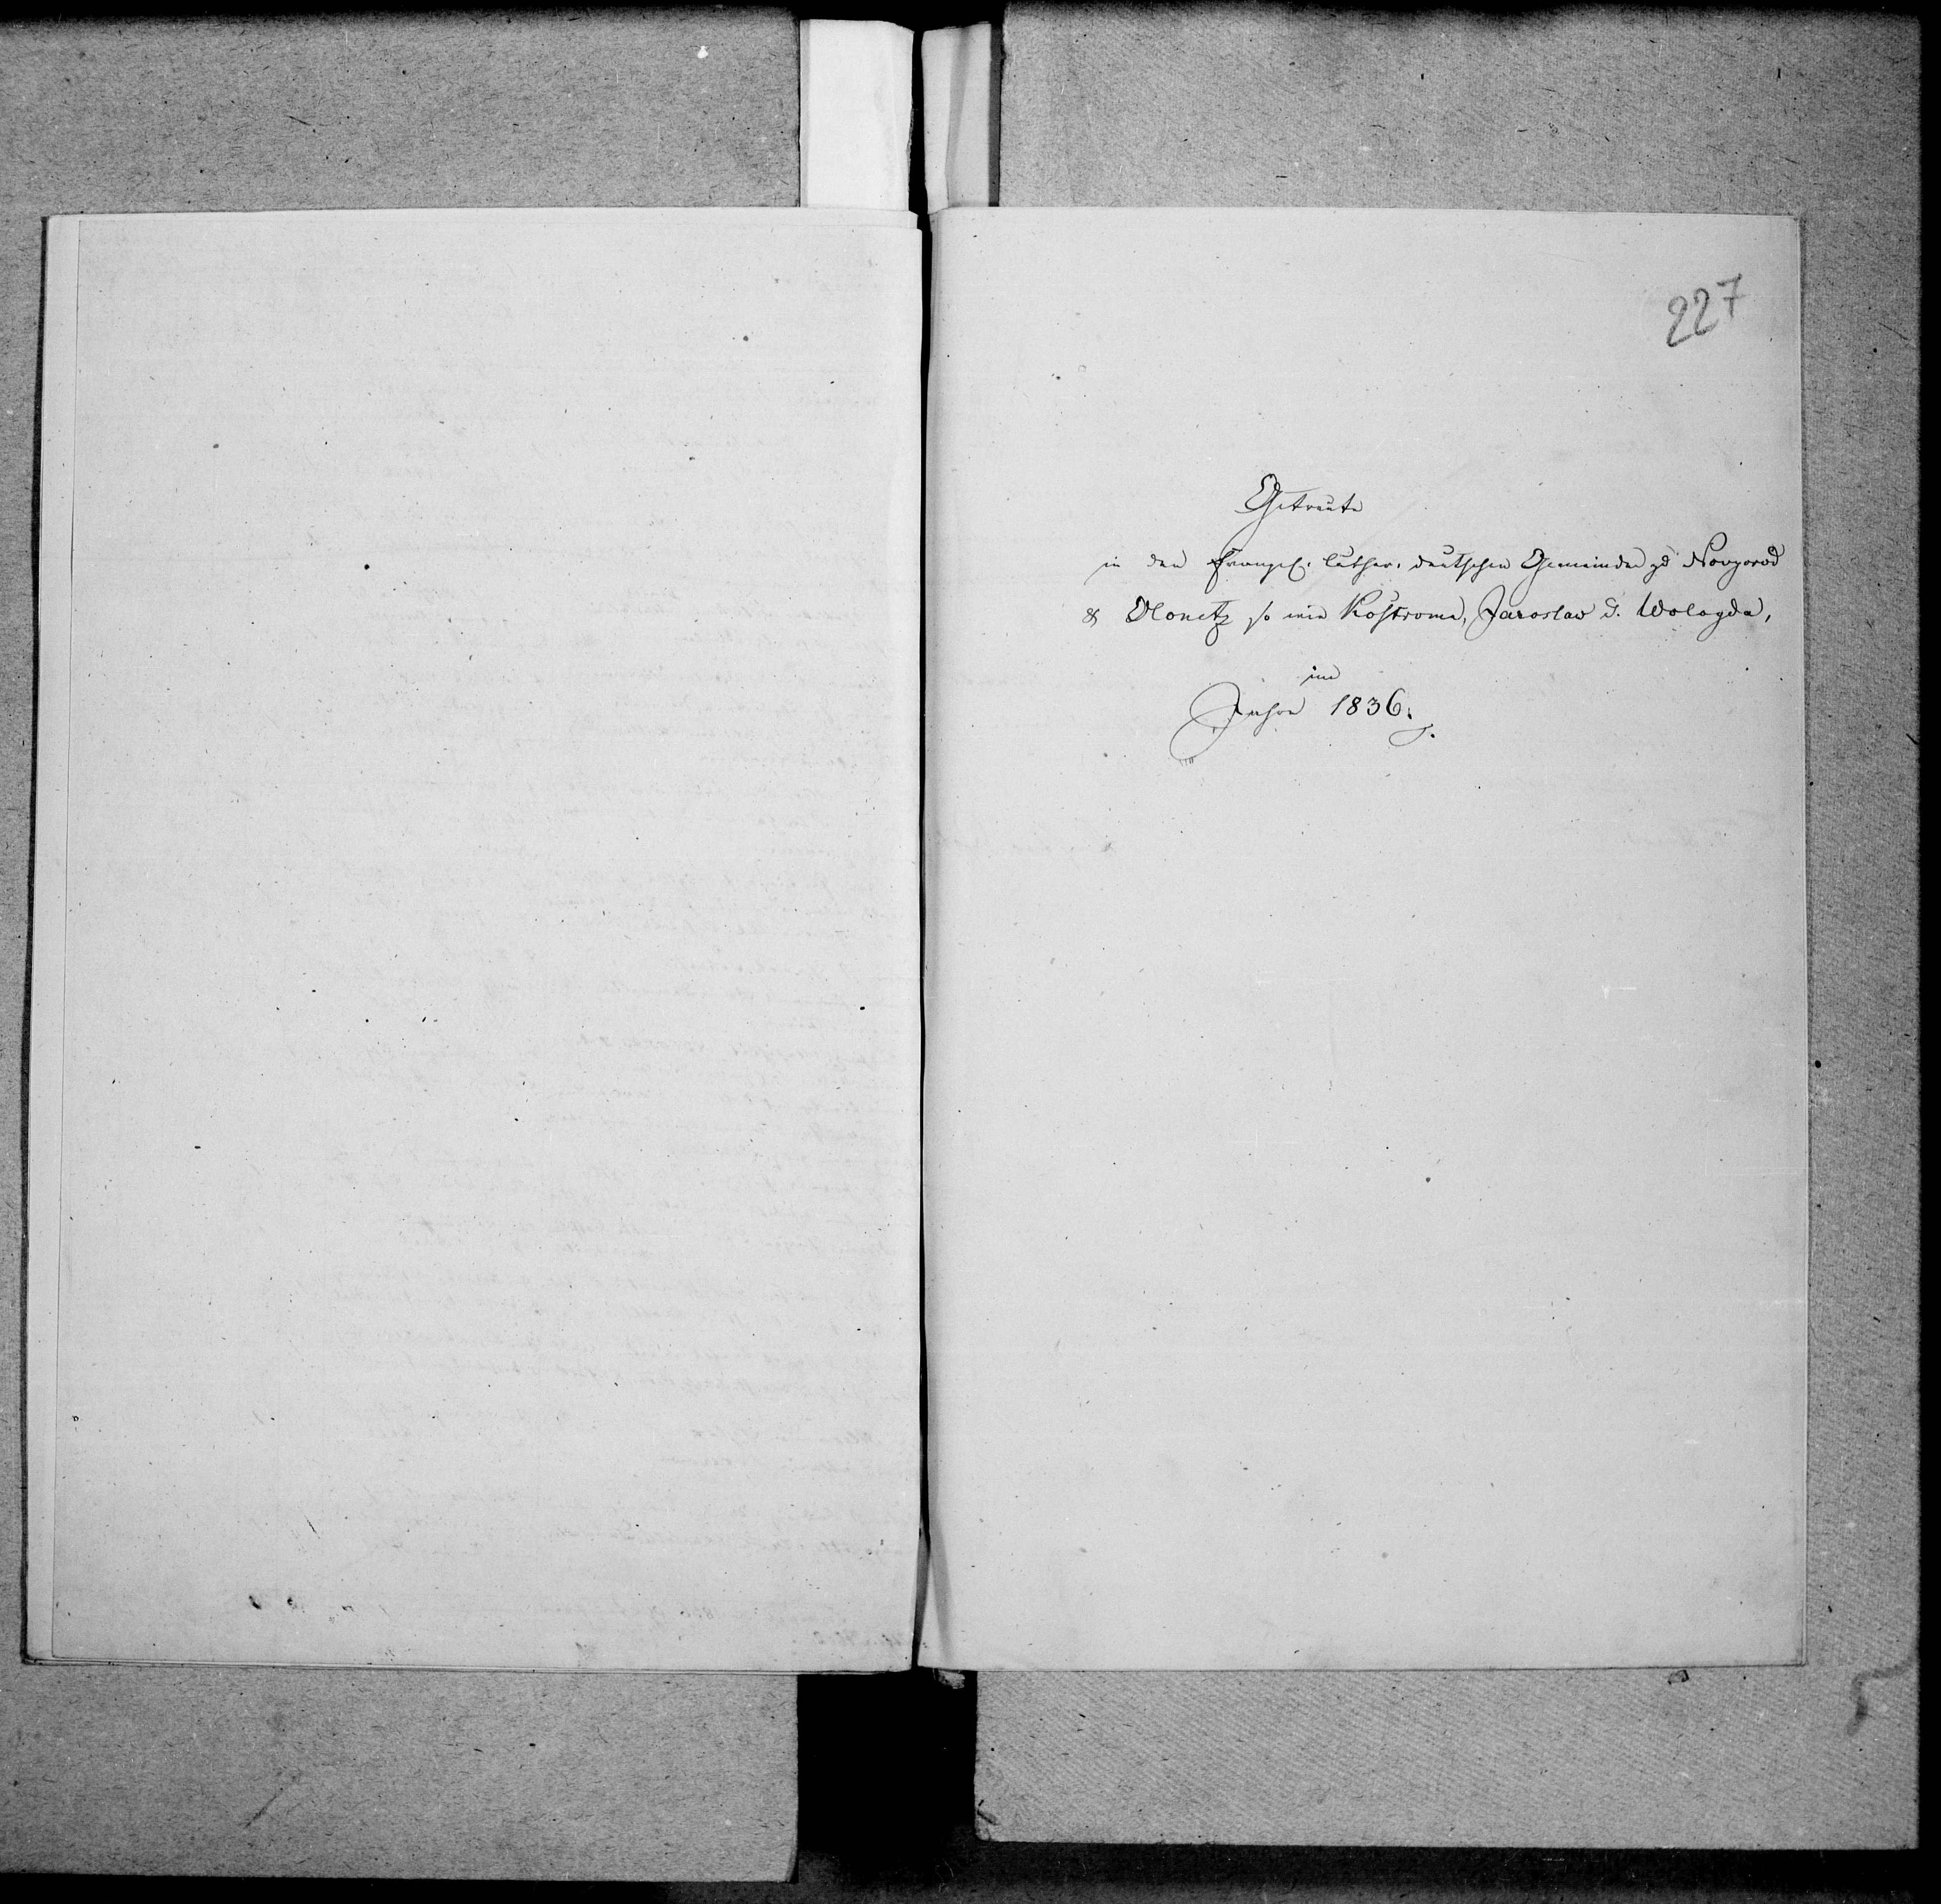 227
Getraute
in den Evangel. luther. deutschen Gemeinden zu Novgorod
& Olonetz so wie Kostroma, Jaroslaw u. Wologda,
im
Jahre 1836.